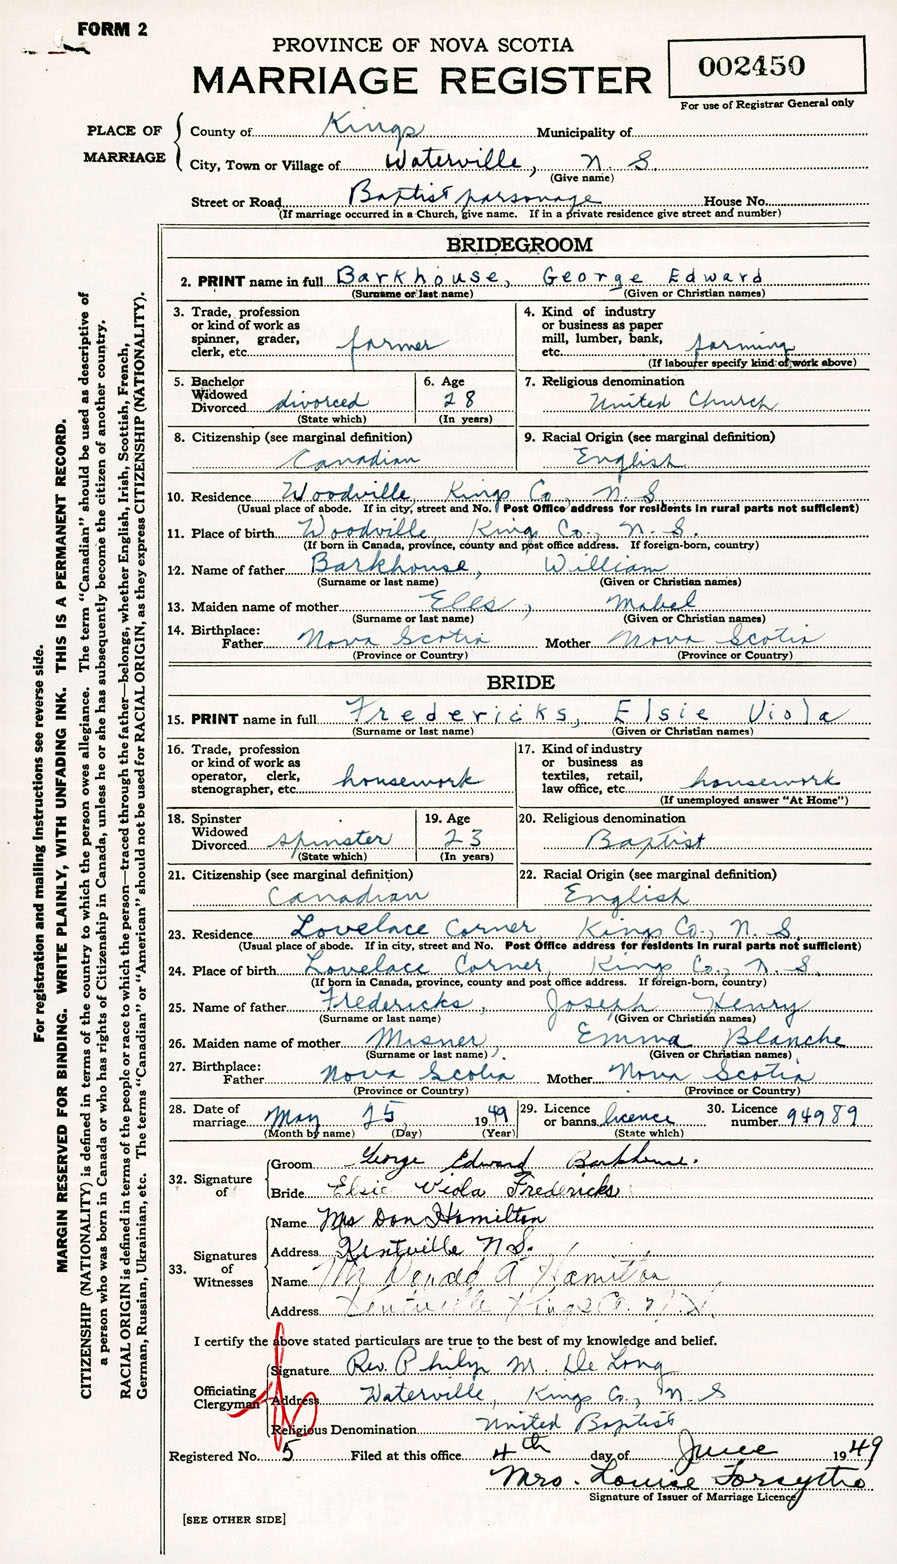 FORM 2
PROVINCE OF NOVA SCOTIA
MARRIAGE REGISTER
002450
For use of Registrar General only
PLACE OF MARRIAGE
County of Kings Municipality of
City, Town or Village of Waterville, N. S.
(Give name)
Street or Road Baptist parsonage House No.
(If marriage occurred in a Church, give name. If in a private residence give street and number)
BRIDEGROOM
2. PRINT name in full Barkhouse, George Edward
(Surname or last name) (Given or Christian names)
3. Trade, profession or kind of work as spinner, grader, clerk, etc. farmer
4. Kind of industry or business as paper mill, lumber, bank, etc. farming
(If labourer specify kind of work above)
5. Bachelor Widowed Divorced divorced
(State which)
6. Age 28
(In years)
7. Religious denomination
United Church
8. Citizenship (see marginal definition)
Canadian
9. Racial Origin (see marginal definition)
English
10. Residence Woodville, Kings Co., N. S.
(Usual place of abode. If in city, street and No. Post Office address for residents in rural parts not sufficient)
11. Place of birth Woodville, Kings Co., N. S.
(If born in Canada, province, county and post office address. If foreign-born, country)
12. Name of father Barkhouse, William
(Surname or last name) (Given or Christian names)
13. Maiden name of mother Ells, Mabel
(Surname or last name) (Given or Christian names)
14. Birthplace:
Father Nova Scotia Mother Nova Scotia
(Province or Country) (Province or Country)
BRIDE
15. PRINT name in full Fredericks, Elsie Viola
(Surname or last name) (Given or Christian names)
16. Trade, profession or kind of work as operator, clerk, stenographer, etc. housework
17. Kind of industry or business as textiles, retail, law office, etc. housework
(If unemployed answer "At Home")
18. Spinster Widowed Divorced spinster
(State which)
19. Age 23
(In years)
20. Religious denomination
Baptist
21. Citizenship (see marginal definition)
Canadian
22. Racial Origin (see marginal definition)
English
23. Residence Lovelace Corner Kings Co., N. S.
(Usual place of abode. If in city, street and No. Post Office address for residents in rural parts not sufficient)
24. Place of birth Lovelace Corner, Kings Co., N. S.
(If born in Canada, province, county and post office address. If foreign-born, country)
25. Name of father Fredericks, Joseph Henry
(Surname or last name) (Given or Christian names)
26. Maiden name of mother Misner, Emma Blanche
(Surname or last name) (Given or Christian names)
27. Birthplace:
Father Nova Scotia Mother Nova Scotia
(Province or Country) (Province or Country)
28. Date of marriage May 25 1949
(Month by name) (Day) (Year)
29. Licence or banns licence
(State which)
30. Licence number 94989
32. Signature of
Groom George Edward Barkhouse.
Bride Elsie Viola Fredericks
33. Signatures of Witnesses
Name Mrs Don Hamilton
Address Kentville N.S.
Name Mr Donald A Hamilton
Address Kentville Kings Co. N.S.
I certify the above stated particulars are true to the best of my knowledge and belief.
Officiating Clergyman
Signature Rev. Philip M. De Long
Address Waterville, Kings Co., N. S
Religious Denomination United Baptist
Registered No. 5 Filed at this office 4th day of June 1949
Mrs. Louise Forsythe
Signature of Issuer of Marriage Licence
[SEE OTHER SIDE]
For registration and mailing instructions see reverse side.
MARGIN RESERVED FOR BINDING. WRITE PLAINLY, WITH UNFADING INK. THIS IS A PERMANENT RECORD.
CITIZENSHIP (NATIONALITY) is defined in terms of the country to which the person owes allegiance. The term "Canadian" should be used as descriptive of
a person who was born in Canada or who has rights of Citizenship in Canada, unless he or she has subsequently become the citizen of another country.
RACIAL ORIGIN is defined in terms of the people or race to which the person—traced through the father—belongs, whether English, Irish, Scottish, French,
German, Russian, Ukrainian, etc. The terms "Canadian" or "American" should not be used for RACIAL ORIGIN, as they express CITIZENSHIP (NATIONALITY).